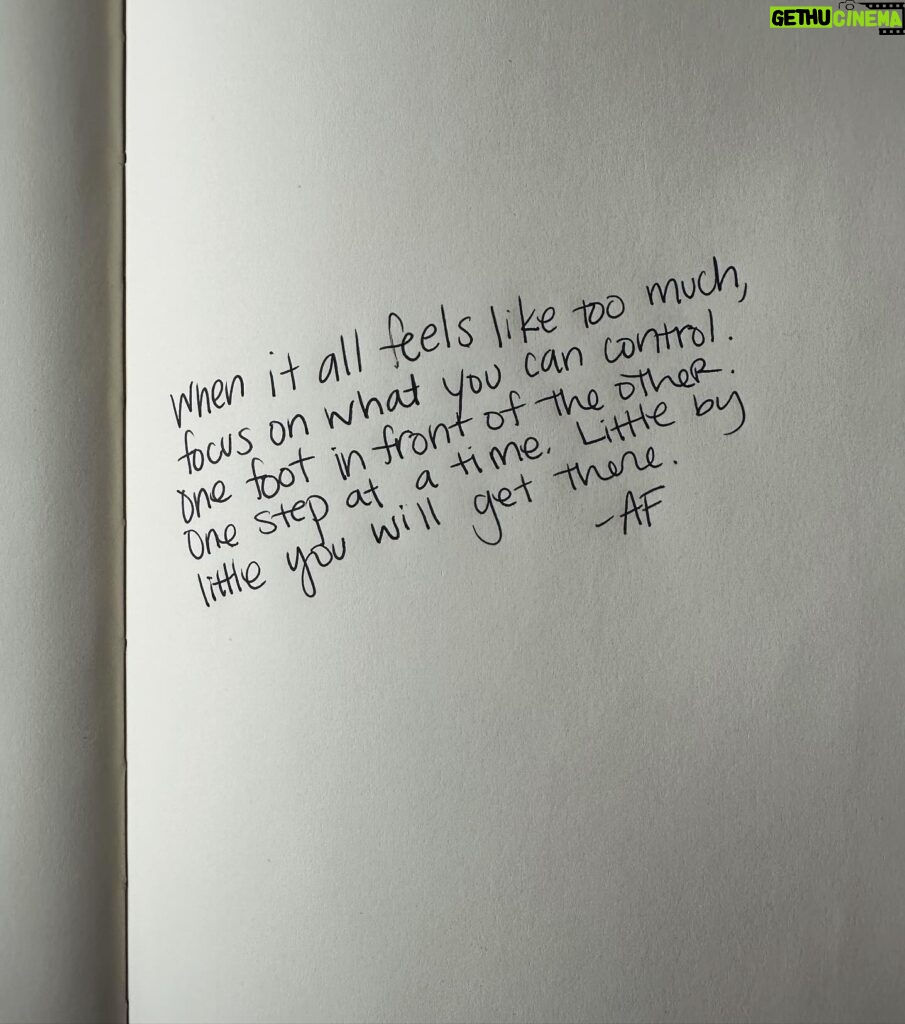 GETHUCINEMA
When it all feels like too much,
focus on what you can control.
One foot in front of the other.
One step at a time. Little by
little you will get there.
-AF